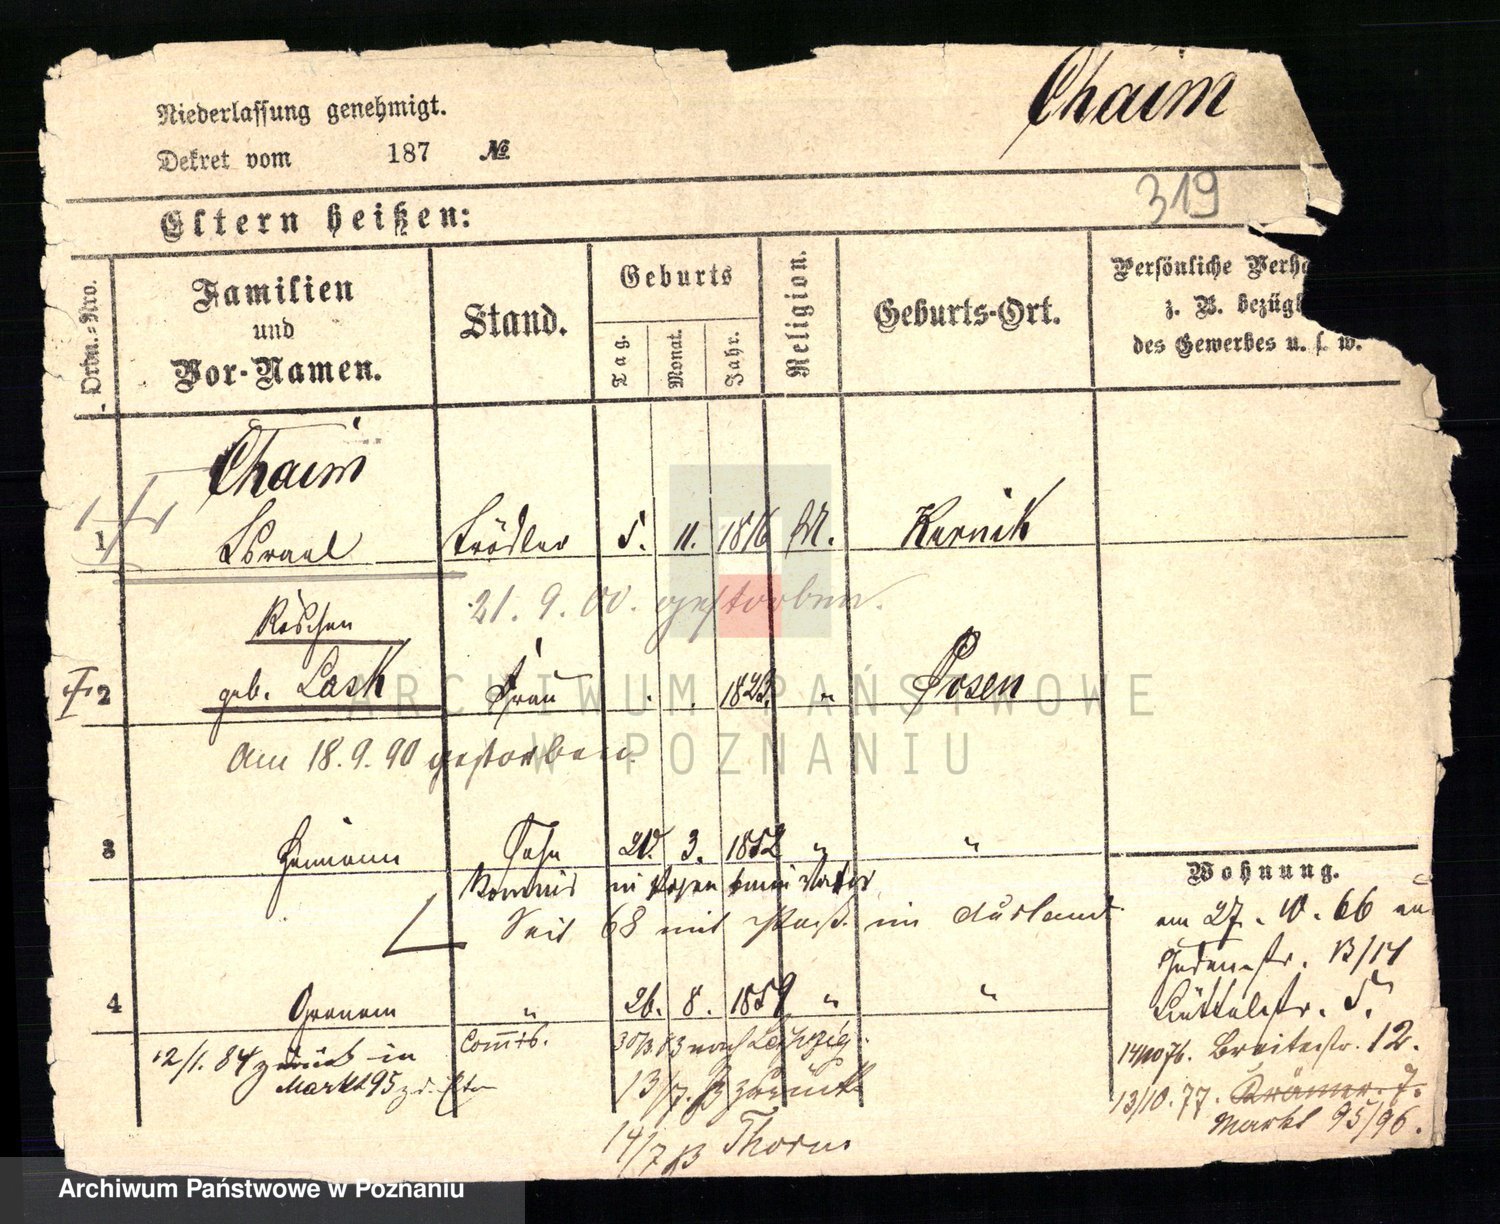 Chaim
Niederlassung genehmigt.
Dekret vom 187 №
319
Eltern heißen:
Ordn.-Nro.
Familien
und
Vor-Namen.
Stand.
Geburts
Tag.
Monat.
Jahr.
Religion.
Geburts-Ort.
Persönliche Verh
z. B. bezügl
des Gewerbes u. s. w.
Chaim
1 Israel Trödler 5. 11. 1816 M. Kurnik
21. 9. 00. gestorben.
Röschen
2 geb. Lask Frau . . 1823. " Posen
Am 18.9.90 gestorben.
3 Hermann Sohn 20. 3. 1852 " "
Kommis in Posen beim Vater
Seit 68 mit Paß im Ausland
4 " 26. 8. 1859 " "
Commis. 30/3 83 nach Leipzig.
12/1. 84 zurück in
Markt 95 z. d. Eltern
13/7. 83 zurück
14/7 83 Thorn
Wohnung.
am 27. 10. 66 an
Judenstr. 13/14
Büttelstr. 5.
14/10 76. Breitestr. 12.
13/10. 77. Krämer. 7.
Markt 95/96.
ARCHIWUM PAŃSTWOWE
W POZNANIU
Archiwum Państwowe w Poznaniu